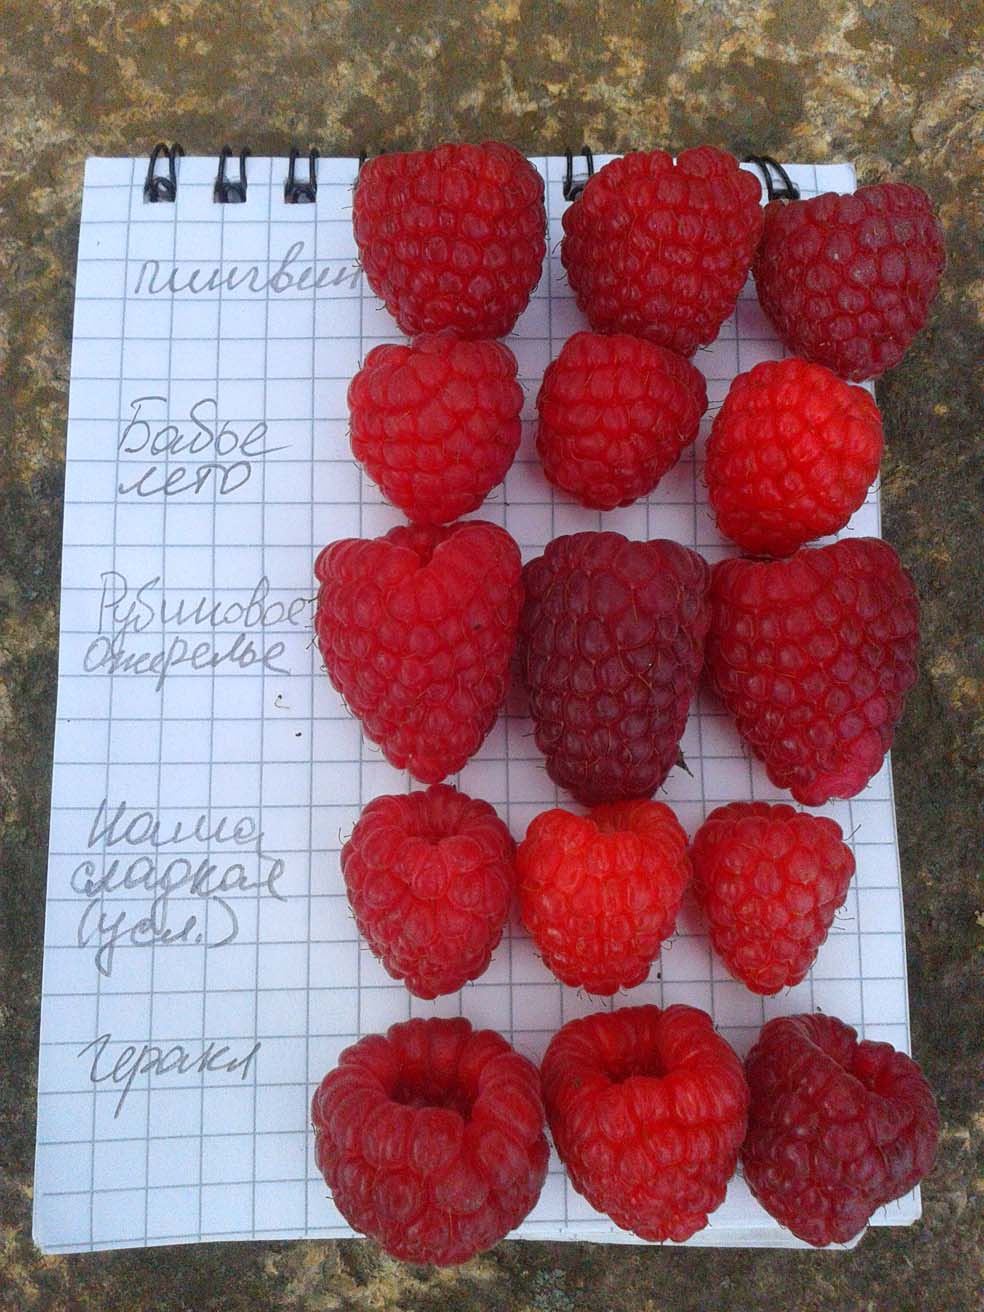 пингвин
Бабье
лето
Рубиновое
ожерелье
Наша
сладкая
(усл.)
Геракл